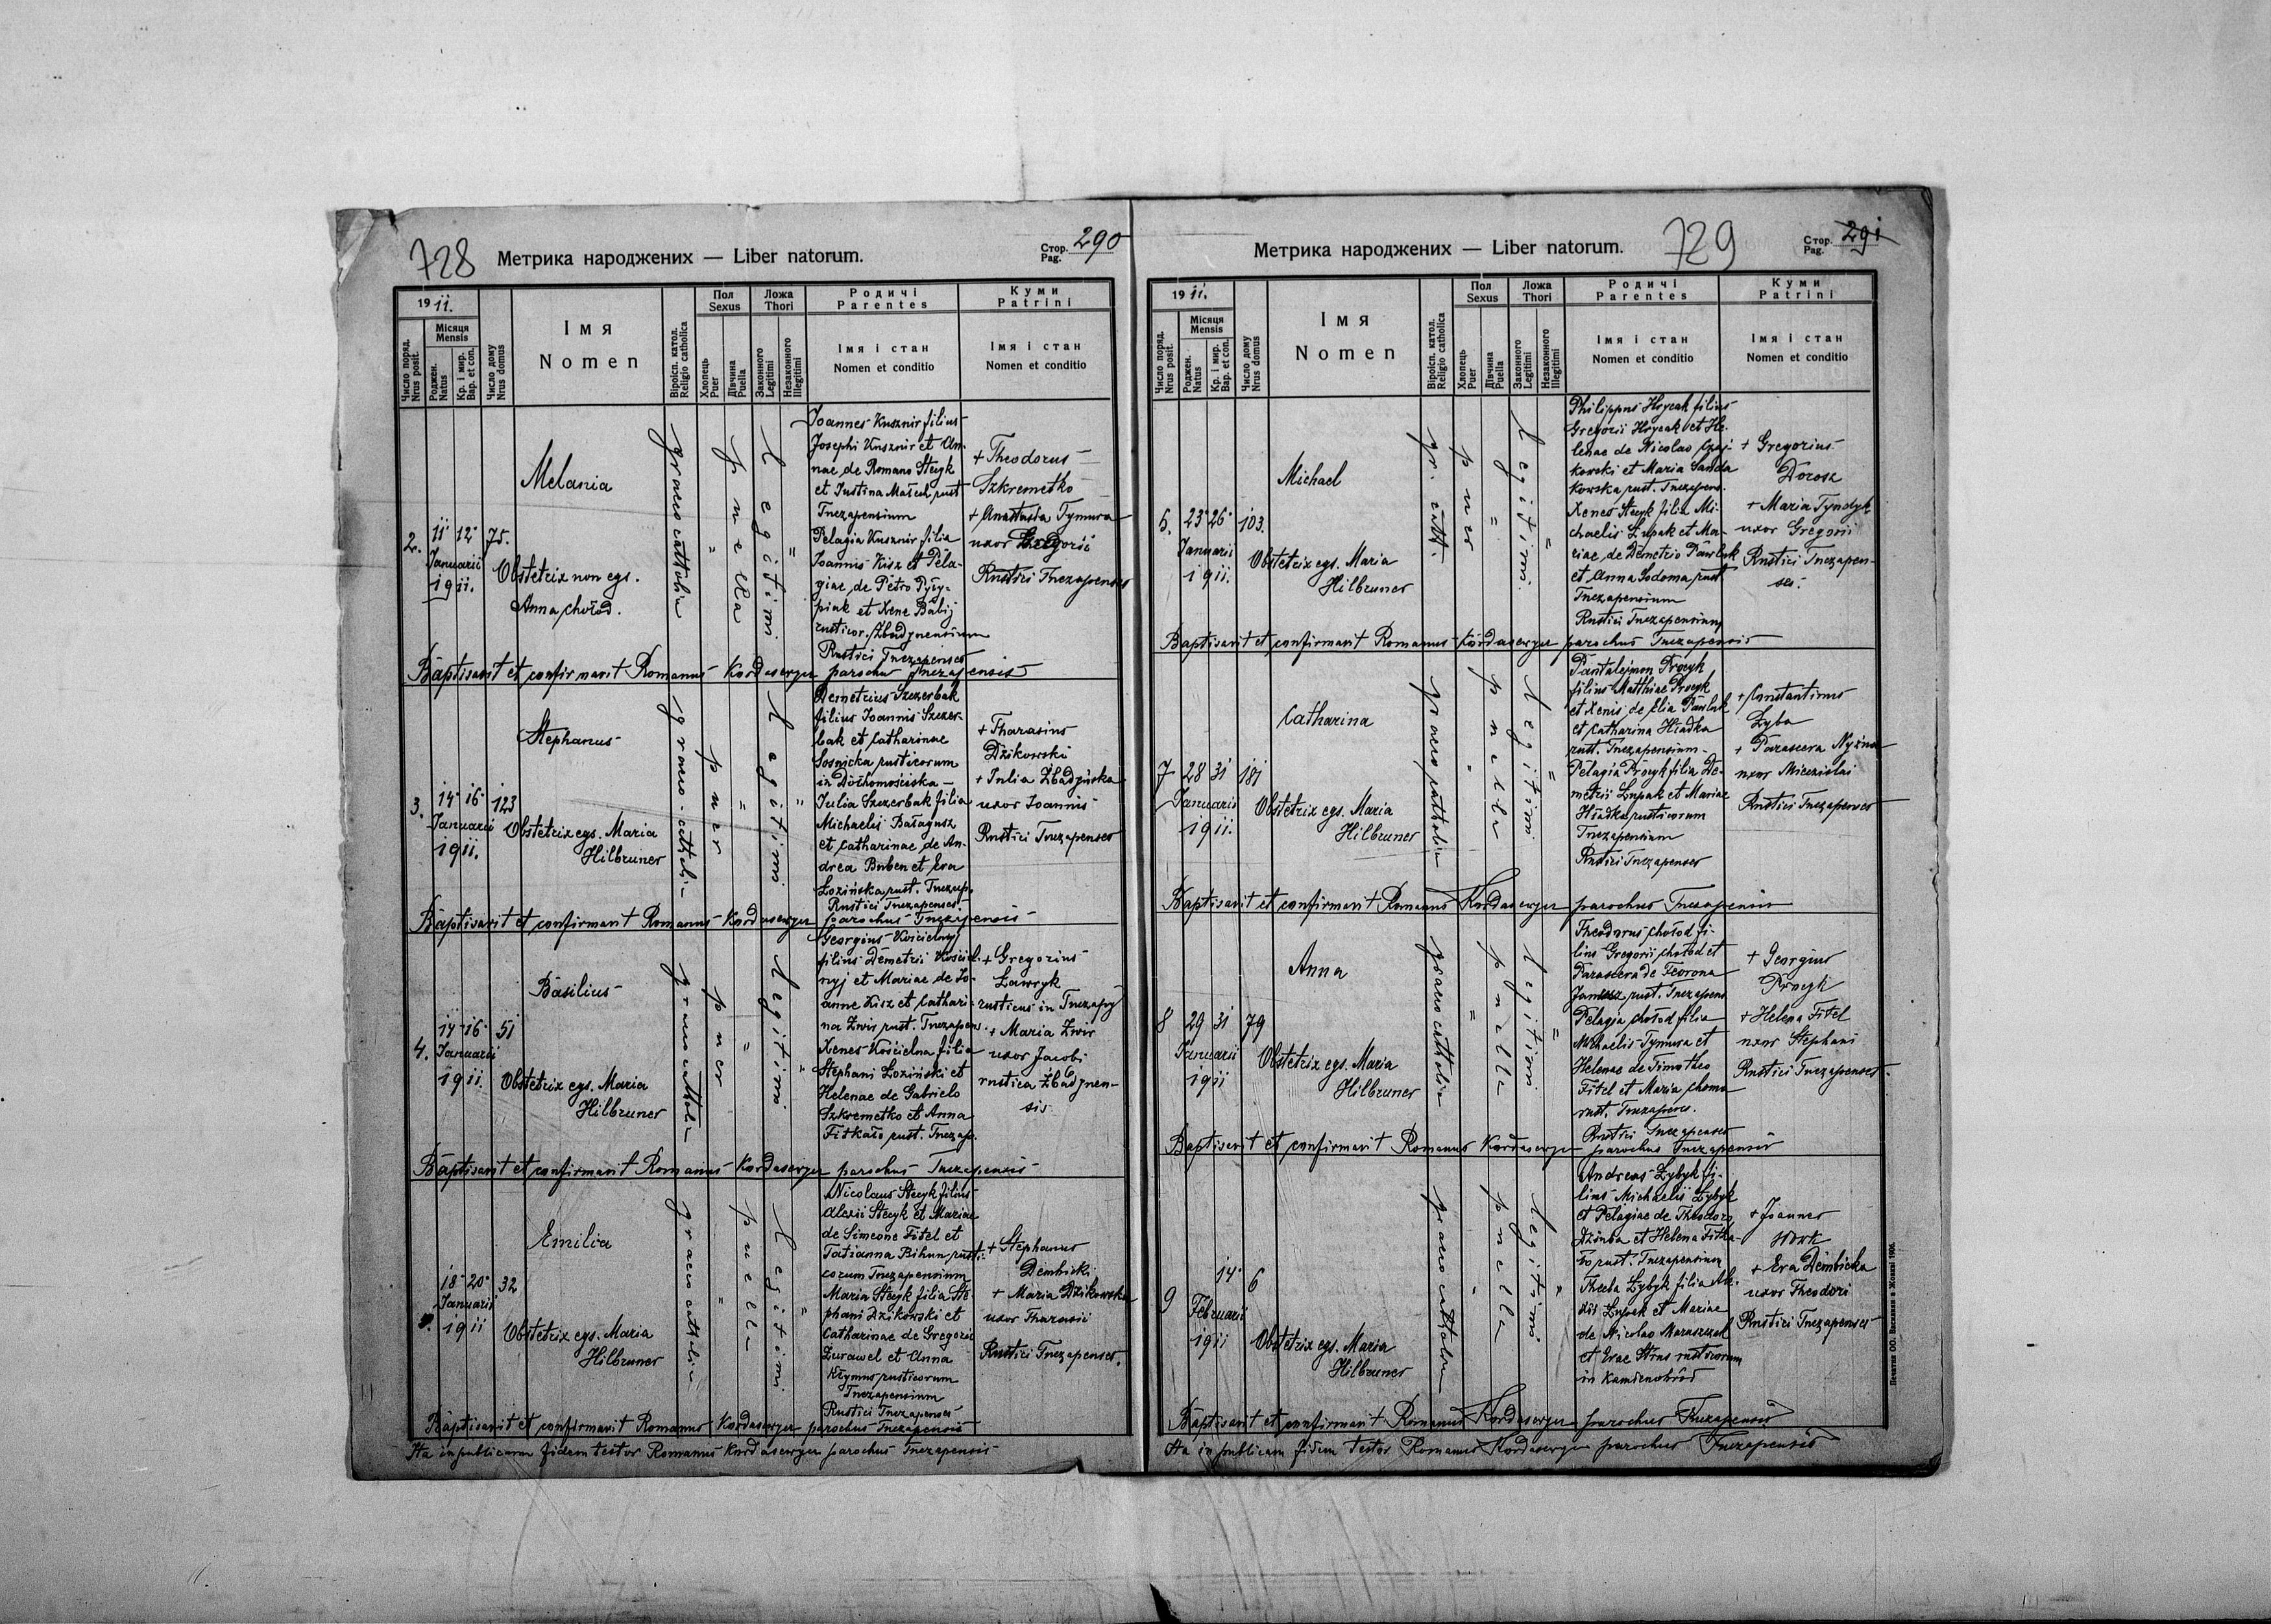 728
Метрика народжених — Liber natorum.
Стор. Pag. 290
1911.
Число поряд. Nrus posit.
Місяця Mensis
Роджен. Natus
Кр. і мир. Bap. et con.
Число дому Nrus domus
Імя
Nomen
Віроісп. катол. Religio catholica
Пол Sexus
Хлопець Puer
Дівчина Puella
Ложа Thori
Законного Legitimi
Незаконного Illegitimi
Родичі Parentes
Імя і стан
Nomen et conditio
Куми Patrini
Імя і стан
Nomen et conditio
2.
11 12 75.
Januarii
1911.
Melania
Obstetrix non egs.
Anna Chołod.
graeco catholica
puella
Legitimi
Joannes Kusznir filius
Josephi Kusznir et An-
nae de Romano Stecyk
et Justina rust
Tuczapensium
Pelagia Kusznir filia
Joannis Kisz et Pela-
giae de Petro Pyry-
piak et Xene Babij
rusticor. Zbadynensium
Rustici Tuczapenses
+ Theodorus
Szkremetko
+ Anastasia Tymura
uxor Gregorii
Rustici Tuczapenses
Baptisavit et confirmavit Romanus Kordasewycz parochus Tuczapensis
3.
14 16 123
Januarii
1911.
Stephanus
Obstetrix egs. Maria
Hilbruner
graeco-catholi-
puer
Legitimi
Demetrius Szczerbak
filius Joannis Szczer-
bak et Catharinae
Sosnicka rusticorum
in Dobromościska
Julia Szczerbak filia
Michaelis Bałagusz
et Catharinae de An-
drea Buben et Eva
Łozińska rust. Tuczap.
Rustici Tuczapenses.
+ Tharasius
Dżikowski
+ Julia Zbadyńska
uxor Joannis
Rustici Tuczapenses
Baptisavit et confirmavit Romanus Kordasewycz parochus Tuczapensis
4.
14 16 51
Januarii
1911.
Basilius
Obstetrix egs. Maria
Hilbruner
graeco catholi-
puer
Legitimi
Georgius Kościelnyj
filius Demetrii Kościel-
nyj et Mariae de Jo-
anne Kisz et Cathari-
na Żwir rust. Tuczapens.
Xenes Kościelna filia
Stephani Łoziński et
Helenae de Gabrielo
Szkremetko et Anna
Fitkało rust. Tuczap.
+ Gregorius
Ławryk
rusticus in Tuczapy
+ Maria Żwir
uxor Jacobi
rustica Zbadynen-
sis
Baptisavit et confirmavit Romanus Kordasewycz parochus Tuczapensis
18 20 32
Januarii
1911
Emilia
Obstetrix egs. Maria
Hilbruner
graeco catholi-
puella
Legitimi
Nicolaus Stecyk filius
Alexii Stecyk et Mariae
de Simeone Fitel et
Tatianna Bihun rusti-
corum Tuczapensium
Maria Stecyk filia Ste-
phani Dżikowski et
Catharinae de Gregorio
Żurawel et Anna
Kłymus rusticorum
Tuczapensium
Rustici Tuczapenses
+ Stephanus
Dembicki
+ Maria Dżikowska
uxor Tharasii
Rustici Tuczapenses.
Baptisavit et confirmavit Romanus Kordasewycz parochus Tuczapensis
Ita in publicam fidem testor Romanus Kordasewycz parochus Tuczapensis
Метрика народжених — Liber natorum.
729
Стор. Pag. 291
1911.
Число поряд. Nrus posit.
Місяця Mensis
Роджен. Natus
Кр. і мир. Bap. et con.
Число дому Nrus domus
Імя
Nomen
Віроісп. катол. Religio catholica
Пол Sexus
Хлопець Puer
Дівчина Puella
Ложа Thori
Законного Legitimi
Незаконного Illegitimi
Родичі Parentes
Імя і стан
Nomen et conditio
Куми Patrini
Імя і стан
Nomen et conditio
6.
23 26 103.
Januarii
1911.
Michael
Obstetrix egs. Maria
Hilbruner
gr. cath.
puer
Legitimi
Philippus Hrycak filius
Gregorii Hrycak et He-
lenae de Nicolao Czaj-
kowski et Maria Sanda
kowska rust. Tuczapens.
Xenes Stecyk filia Mi-
chaelis Łupak et Ma-
riae de Demetrio Pawluk
et Anna Sodoma rust
Tuczapensium
Rustici Tuczapensium
+ Gregorius
Dorosz
+ Maria Tyndyk
uxor Gregorii
Rustici Tuczapen-
ses.
Baptisavit et confirmavit Romanus Kordasewycz parochus Tuczapensis
7
28 31 181
Januarii
1911.
Catharina
Obstetrix egs. Maria
Hilbruner
graeco catholi-
puella
Legitimi
Pantalejmon Procyk
filius Matthiae Procyk
et Xenis de Elia Pawluk
et Catharina Hładka
rust. Tuczapensium
Pelagia Procyk filia De-
metrii Łupak et Mariae
Hładka rusticorum
Tuczapensium
Rustici Tuczapenses
+ Constantinus
Zyba
+ Parascera Nyżna
uxor Miecislai
Rustici Tuczapenses
Baptisavit et confirmavit Romanus Kordasewycz parochus Tuczapensis
8
29 31 79
Januarii
1911
Anna
Obstetrix egs. Maria
Hilbruner
graeco catholica
puella
Legitimi
Theodorus Chołod fi-
lius Gregorii Chołod et
Parascera de Feorona
rust. Tuczapens
Pelagia Chołod filia
Michaelis Tymura et
Helenae de Timotheo
Fitel et Maria Choma
rust. Tuczapens.
Rustici Tuczapenses
+ Georgius
Procyk
+ Helena Fitel
uxor Stephani
Rustici Tuczapenses
Baptisavit et confirmavit Romanus Kordasewycz parochus Tuczapensis
9
14 6
Februarii
1911
Obstetrix egs. Maria
Hilbruner
graeco catholica
puella
Legitimi
Andreas Zybyk fi-
lius Michaelis Zybyk
et Pelagiae de Theodoro
Dziuba et Helena Fitka-
ło rust. Tuczapensium
Thecla Zybyk filia Ale-
xii Łupak et Mariae
de Nicolao Maraszczak
et Evae Strus rusticorum
in Kamienobród
+ Joannes
Wowk
+ Eva Dembicka
uxor Theodori
Rustici Tuczapenses
Baptisavit et confirmavit Romanus Kordasewycz parochus Tuczapensis
Ita in publicam fidem testor Romanus Kordasewycz parochus Tuczapensis
Печатня ОО. Василіян в Жовкві 1906.